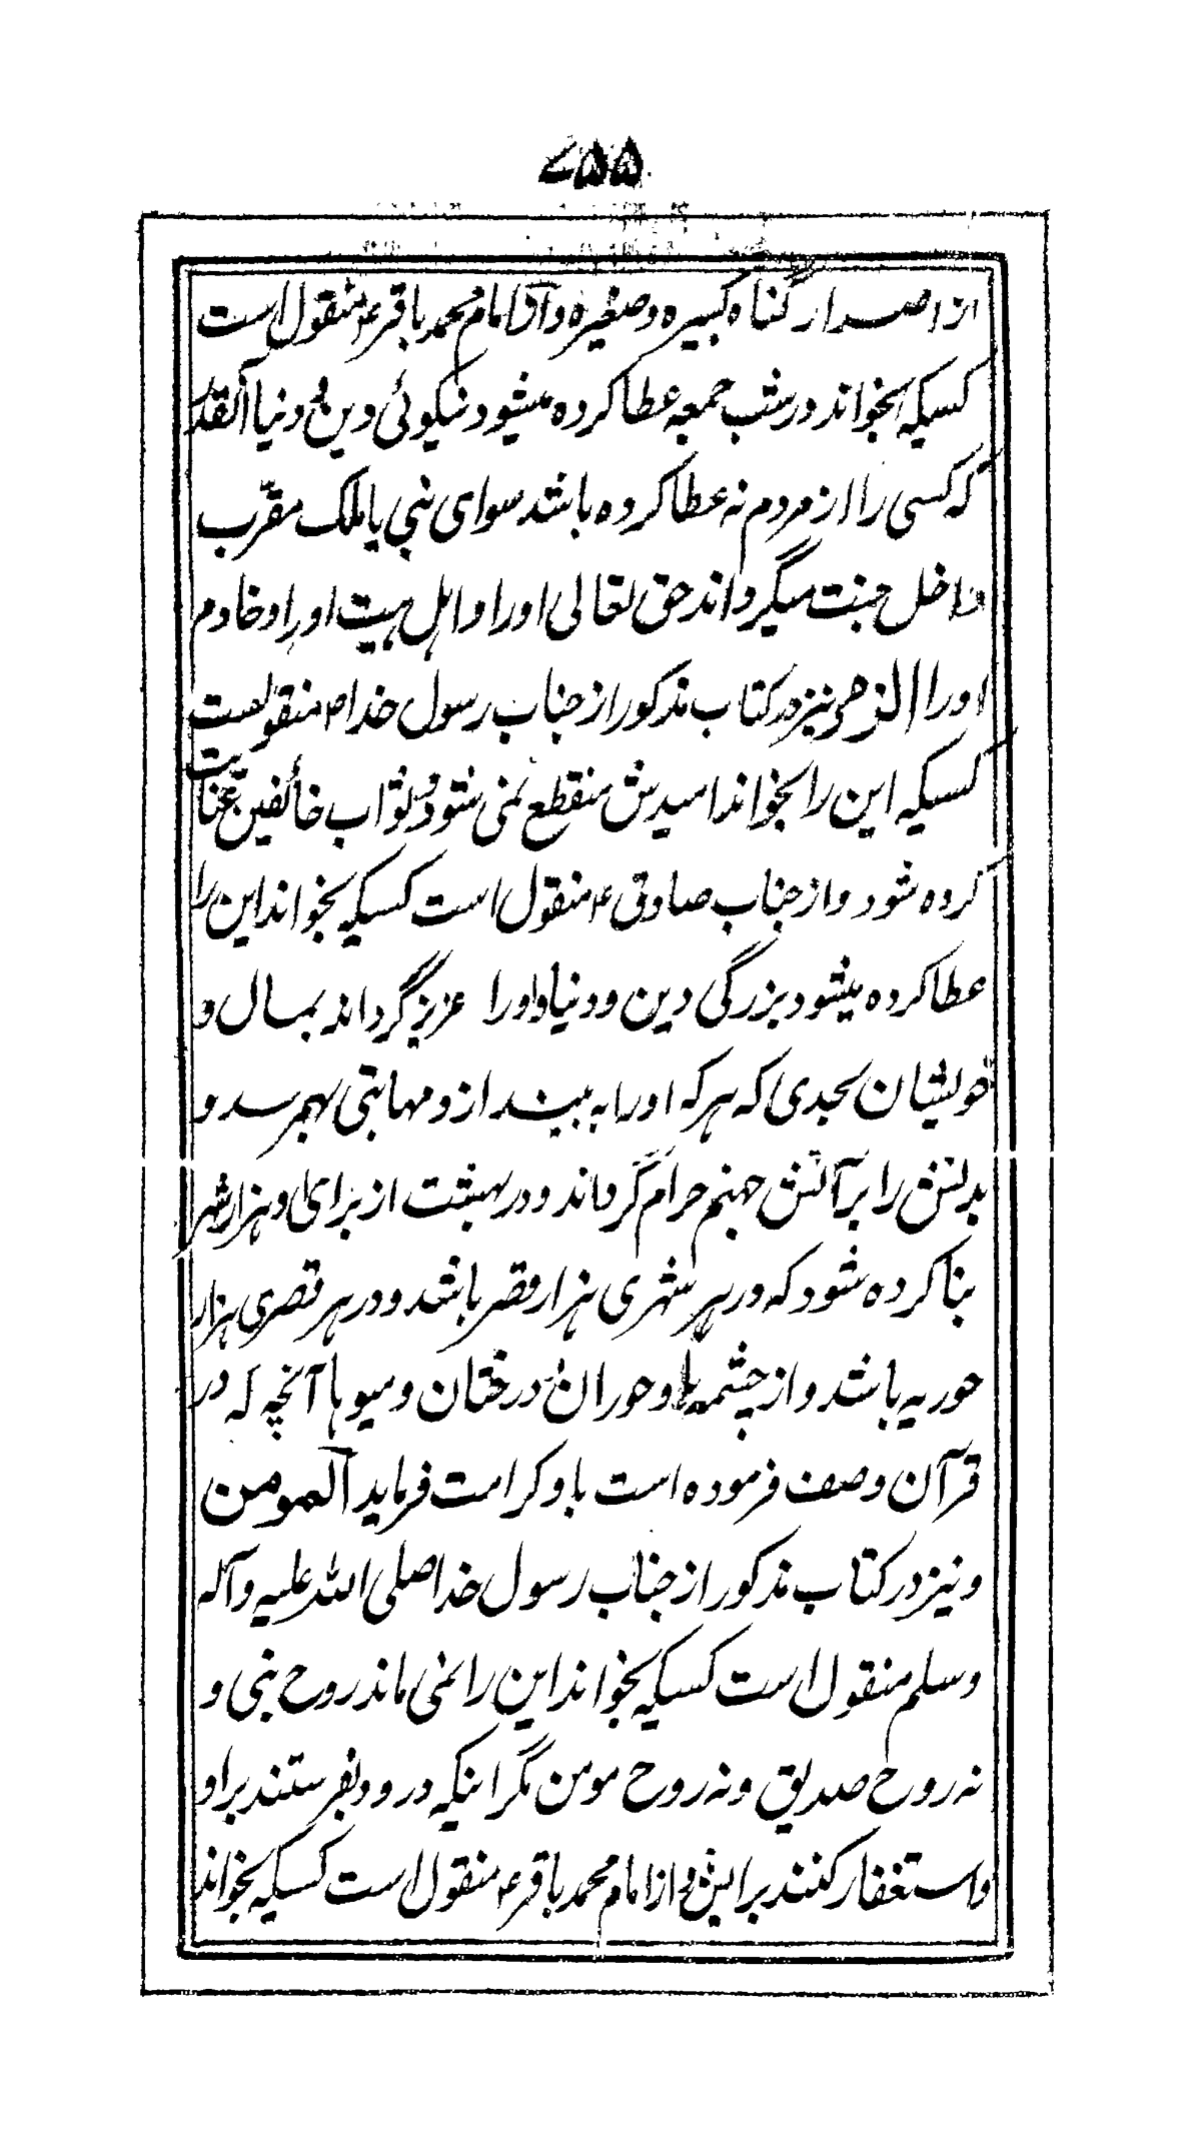 ۷۵۵
از اصرار گناه کبیره وصغیره واز امام محمد باقر؏ منقول است
کسیکه بخواند در شب جمعه عطا کرده میشود نیکوئی دین و دنیا آنقدر
که کسی را از مردم نه عطا کرده باشد سوای نبی یا ملک مقرّب
داخل جنت میگرداند حق تعالی اورا واهل بیت اورا وخادم
اورا الزمر نیز در کتاب مذکور از جناب رسول خدا ص منقولست
کسیکه این را بخواند امیدش منقطع نمی شود و ثواب خائفین عنایت
کرده شود واز جناب صادق ؏ منقول است کسیکه بخواند این را
عطا کرده میشود بزرگی دین و دنیا واورا عزیز گرداند بمال و
خویشان بحدی که هر که اورا به بیند ازو مهابتی بهمرسد و
بدنش را بر آتش جهنم حرام گرداند و در بهشت از برای او هزار شهر
بنا کرده شود که در هر شهری هزار قصر باشد و در هر قصری هزار
حوریه باشد و از چشمها و حوران و درختان و میوها آنچه که در
قرآن وصف فرموده است باو کرامت فرماید المومن
ونیز در کتاب مذکور از جناب رسول خدا صلی الله علیه وآله
وسلم منقول است کسیکه بخواند این را نمی ماند روح نبی و
نه روح صدیق ونه روح مومن مگر اینکه درود بفرستند بر او
واستغفار کنند برایش واز امام محمد باقر ؏ منقول است کسیکه بخواند